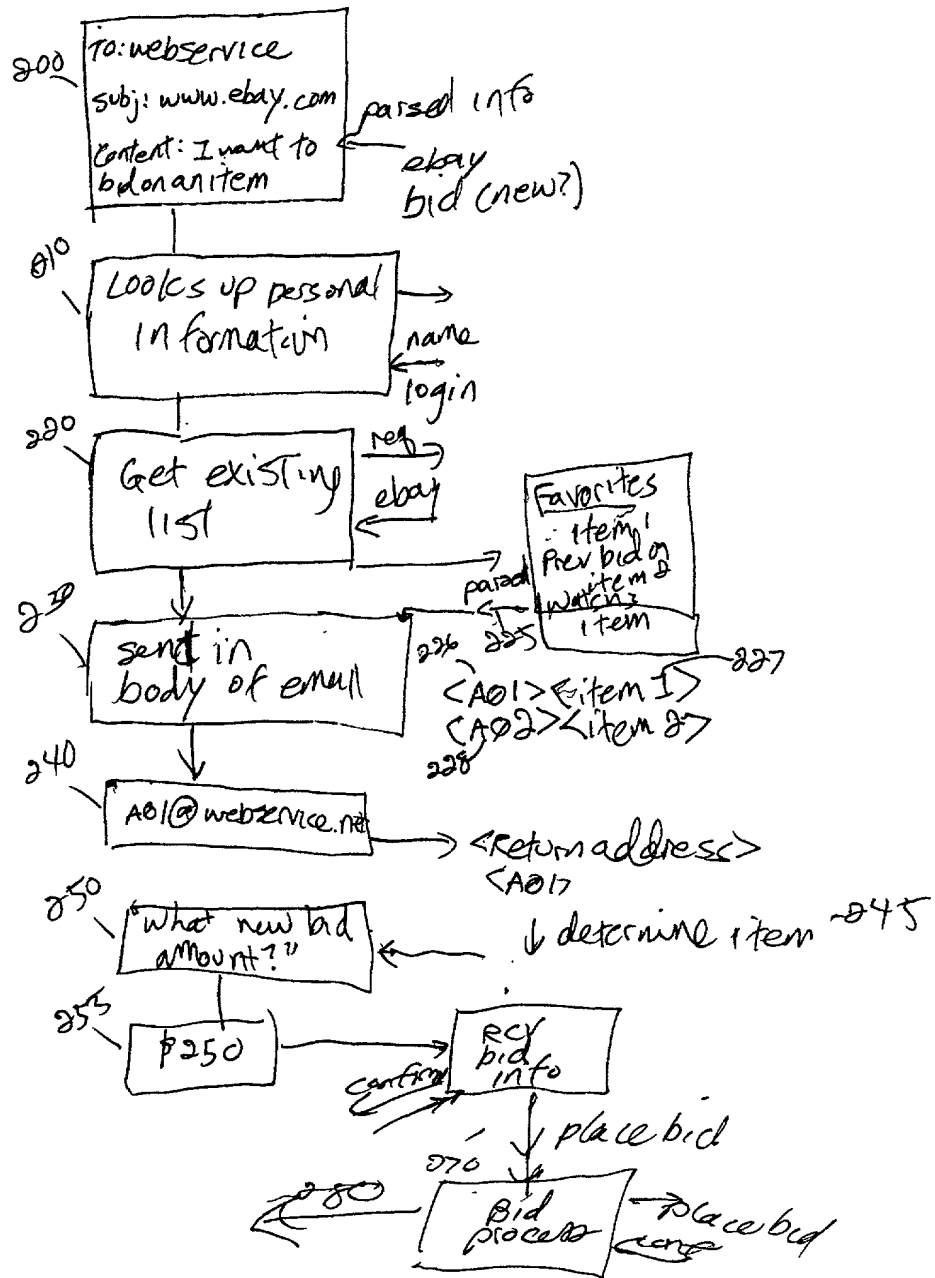 200
To: webservice
subj: www.ebay.com
Content: I want to
bid on an item
parsed info
ebay
bid (new?)
210
Looks up personal
information
name
login
220
Get existing
list
req
ebay
Favorites
item 1
Prev bid on
item 2
Watching
item
parsed
225
230
send in
body of email
226
227
<A01> <item 1>
<A02> <item 2>
228
240
A01@webservice.net
<return address>
<A01>
250
"What new bid
amount?"
determine item
245
255
$250
RCV
bid
info
confirm
place bid
270
280
Bid
process
place bid